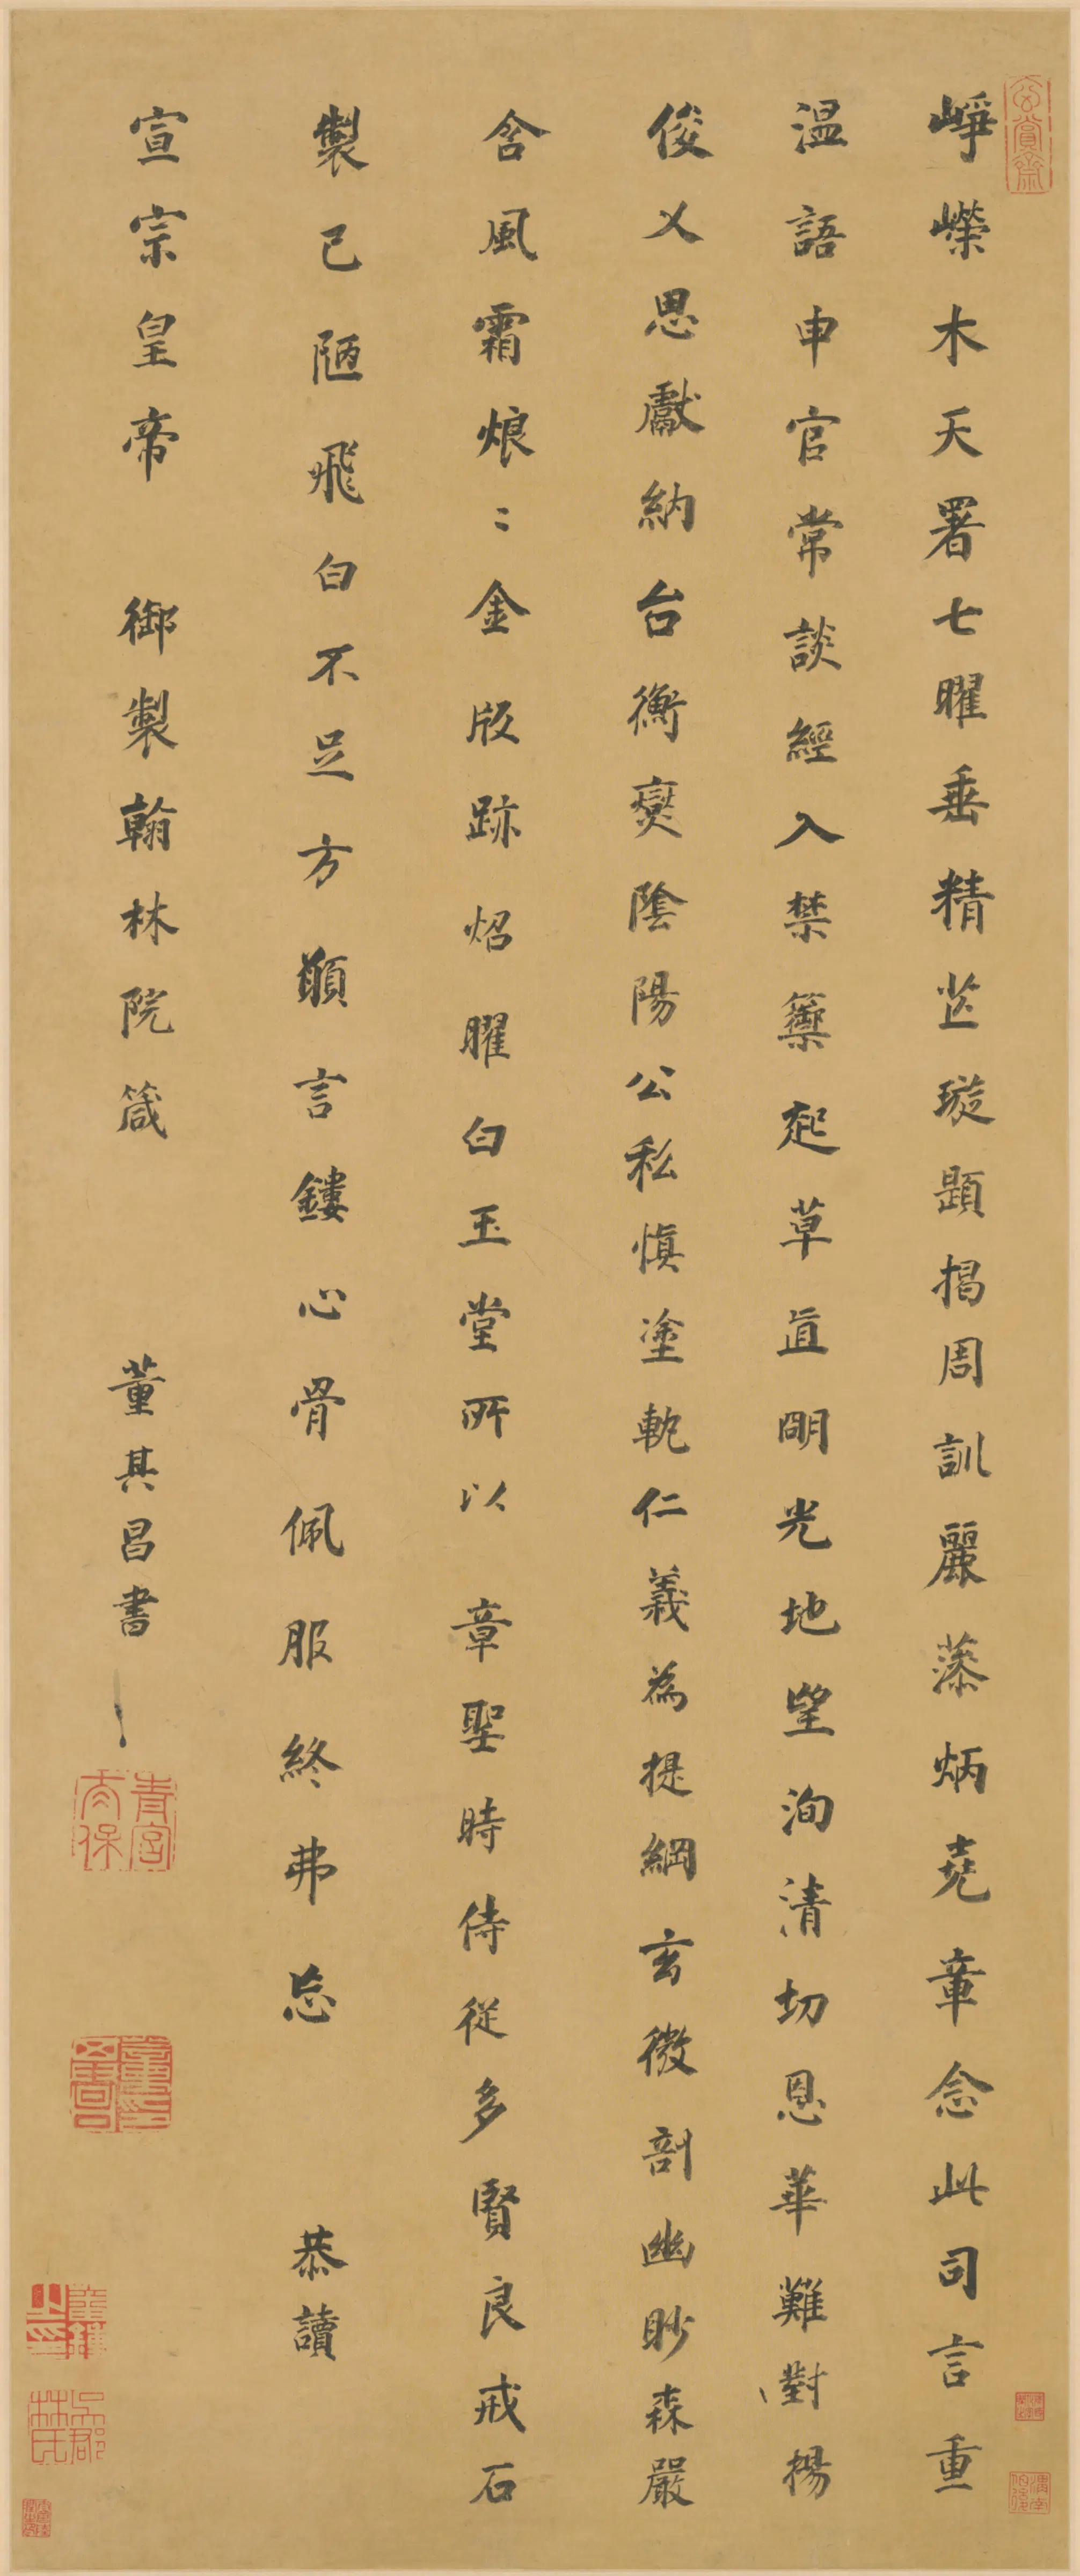 崢嶸木天署七曜垂精芷璇題揭周訓麗藻炳堯章念此司言重
溫語申官常談經入禁籞起草直明光地望洵清切恩華難對揚
俊乂思獻納台衡爕陰陽公私慎塗軌仁義為提綱玄微剖幽眇森嚴
含風霜烺〻金版跡炤曜白玉堂所以章聖時侍從多賢良戒石
製已陋飛白不足方顧言鏤心骨佩服終弗忘 恭讀
宣宗皇帝 御製翰林院箴 董其昌書
玄賞齋
青宮太保